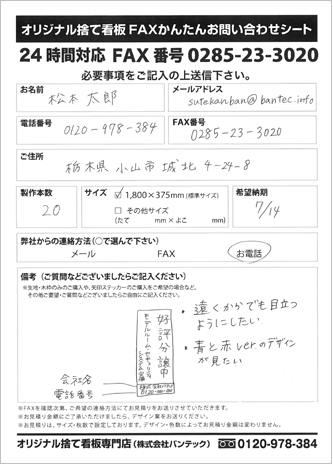 オリジナル捨て看板 FAXかんたんお問い合わせシート
24時間対応 FAX 番号 0285-23-3020
必要事項をご記入の上送信下さい。
お名前
松本 太郎
メールアドレス
sutekanban@bantec.info
電話番号
0120-978-384
FAX番号
0285-23-3020
ご住所
栃木県 小山市 城北 4-24-8
製作本数
20
サイズ
☑ 1,800×375mm(標準サイズ)
□ その他サイズ
(たて mm×よこ mm)
希望納期
7/14
弊社からの連絡方法(○で選んで下さい)
メール FAX お電話
備考(ご質問などございましたらご記入ください)
※生地・木枠のみのご購入や、矢印ステッカーのご購入をご希望の場合など、
その他ご要望・ご質問などございましたらご自由にご記入ください。
好評分譲中
モデルルーム・セキュリティ
システム完備
会社名
電話番号
• 遠くからでも目立つ
ようにしたい
• 青と赤verのデザイン
が見たい
※FAXを確認次第、ご希望の連絡方法にてお見積りをお送りさせていただきます。
※お見積り金額にご了承いただけましたら、デザイン案をお送りください。
※お見積りは、サイズ・枚数で設定しております。デザイン・色数によってお見積り金額は変わりません。
オリジナル捨て看板専門店(株式会社バンテック) 0120-978-384